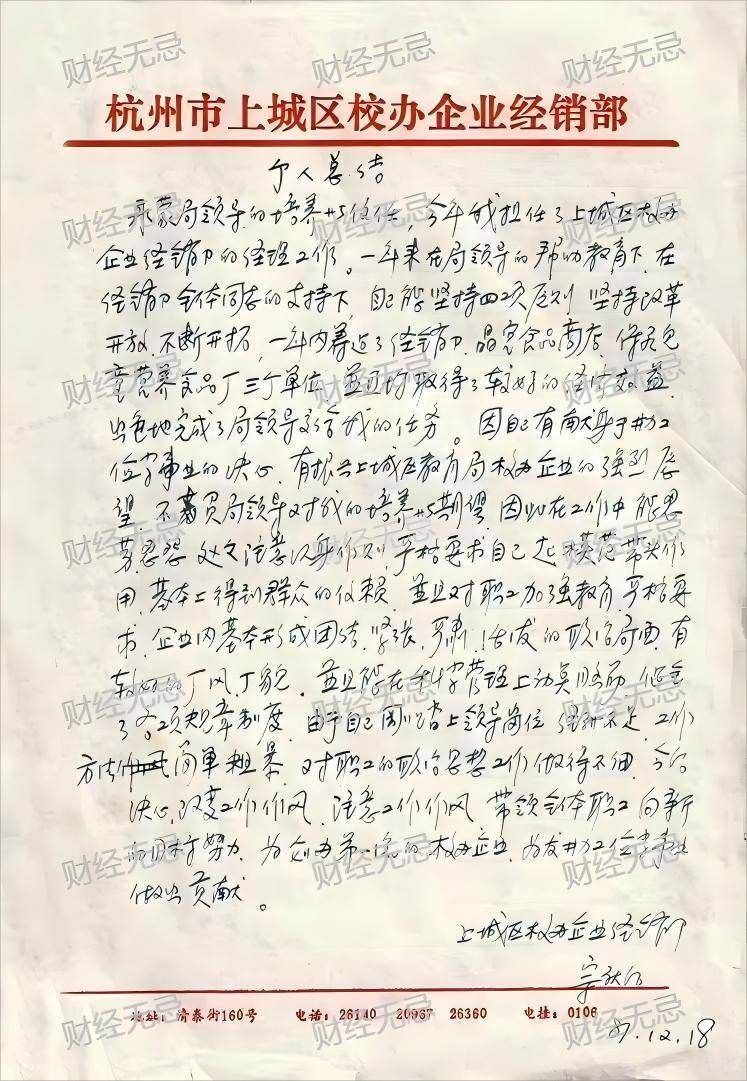 杭州市上城区校办企业经销部
个人总结
承蒙局领导的培养与信任，今年我担任了上城区校办
企业经销部的经理工作。一年来在局领导的帮助教育下，在
经销部全体同志的支持下，自己能坚持四项原则，坚持改革
开放，不断开拓，一年内筹建了经销部、晶宝食品商店、保灵儿
童营养食品厂三个单位，並且均取得了较好的经济效益，
出色地完成了局领导交给我的任务。因自己有献身于校办
事业的决心，有振兴上城区教育局校办企业的强烈愿
望，不辜负局领导对我的培养与期望，因此在工作中能思
劳忍怨，处处注意以身作则，严格要求自己，起模范带头作
用，基本上得到群众的信赖，並且对职工加强教育，严格要
求，企业内基本形成团结、紧张、严肃、活泼的政治局面，有
较好的厂风厂貌，並且能在科学管理上动真格，健全
了各项规章制度，由于自己刚踏上领导岗位，经验不足，工作
方法简单粗暴，对职工的政治思想工作做得不细，今后
决心改变工作作风，注意工作作风，带领全体职工向新
的目标努力，为创办第一流的校办企业，为校办事业
做出贡献。
上城区校办企业经销部
宗庆后
地址：清泰街160号 电话：26140 20967 26360 电挂：0106
87.12.18
财经无忌